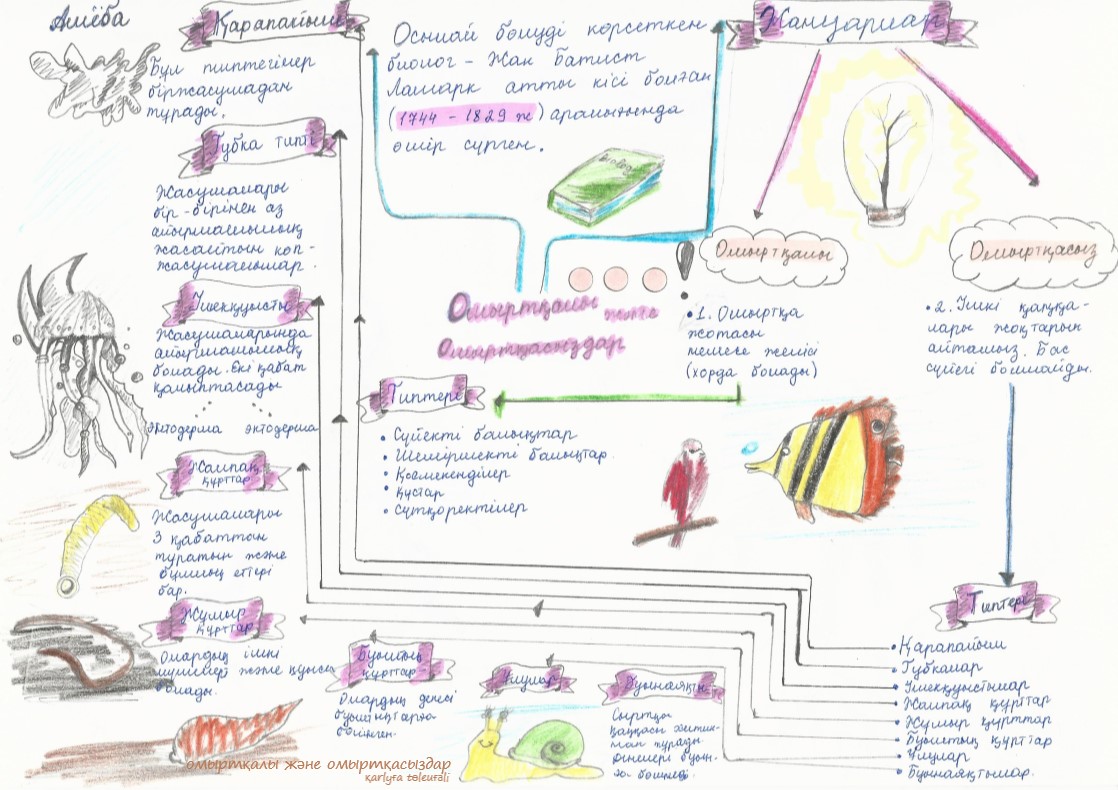 Амёба
Қарапайым
Бұл типтегілер
біржасушадан
тұрады.
Губка типі
Жасушалары
бір-бірінен аз
айырмашылық
жасайтын көп-
жасушалылар.
Ішекқуысты
Жасушаларында
айырмашылық
болады. Екі қабат
қалыптасады
эктодерма эктодерма
Жалпақ
құрттар
Жасушалары
3 қабаттан
тұратын және
бұлшық еттері
бар.
Жұмыр
құрттар
Олардың ішкі
мүшелері және қуысы
болады.
Буылтық
құрттар
Олардың денесі
буылтықтарға
бөлінген.
Ұлулар
Буынаяқты
Сыртқы
қаңқасы хитин-
нен тұрады
Осылай бөлуді көрсеткен
биолог - Жан Батист
Ламарк атты кісі болған
(1744 - 1829 ж) аралығында
өмір сүрген.
biology
Омыртқалы және
Омыртқасыздар
Жануарлар
Омыртқалы
Омыртқасыз
• 1. Омыртқа
жотасы
немесе желісі
(хорда болады)
• 2. Ішкі қаңқа-
лары жоқтарын
айтамыз. Бас
сүйегі болмайды.
Типтері
• Сүйекті балықтар
• Шеміршекті балықтар
• Қосмекенділер
• Құстар
• Сүтқоректілер
Типтері
• Қарапайым
• Губкалар
• Ішекқуыстылар
• Жалпақ құрттар
• Жұмыр құрттар
• Буылтық құрттар
• Ұлулар
• Буынаяқтылар.
омыртқалы және омыртқасыздар
қarlyға төлеиғali